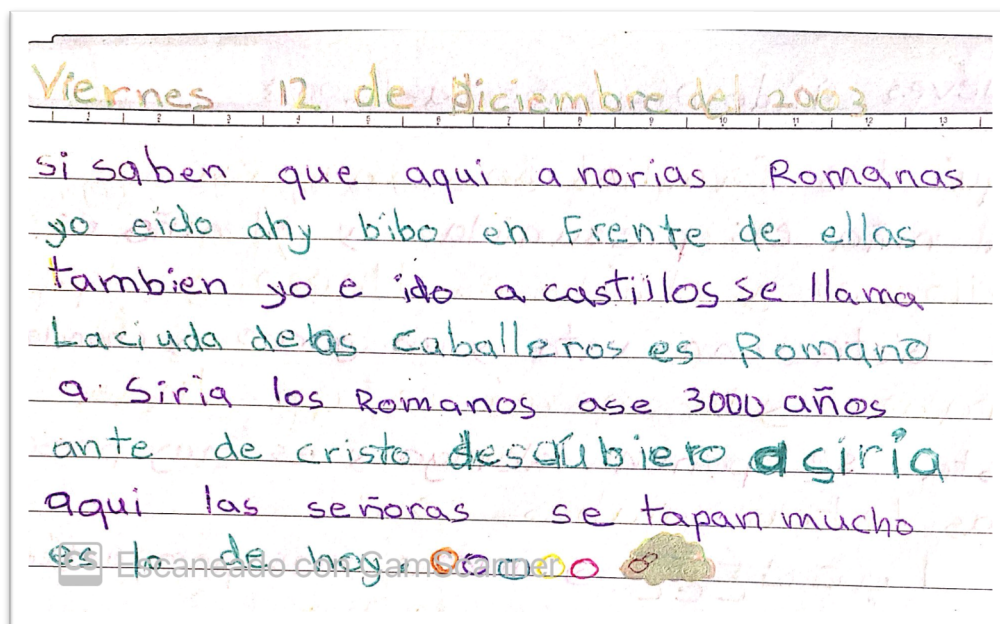 Viernes 12 de Diciembre del 2003
1 2 3 4 5 6 7 8 9 10 11 12 13
si saben que aqui a norias Romanas
yo eido ahy bibo en Frente de ellas
tambien yo e ido a castillos se llama
La ciuda delas Caballeros es Romano
a Siria los Romanos ase 3000 años
ante de cristo descubiero a siria
aqui las señoras se tapan mucho
es lo de hoy.
CS Escaneado con CamScanner